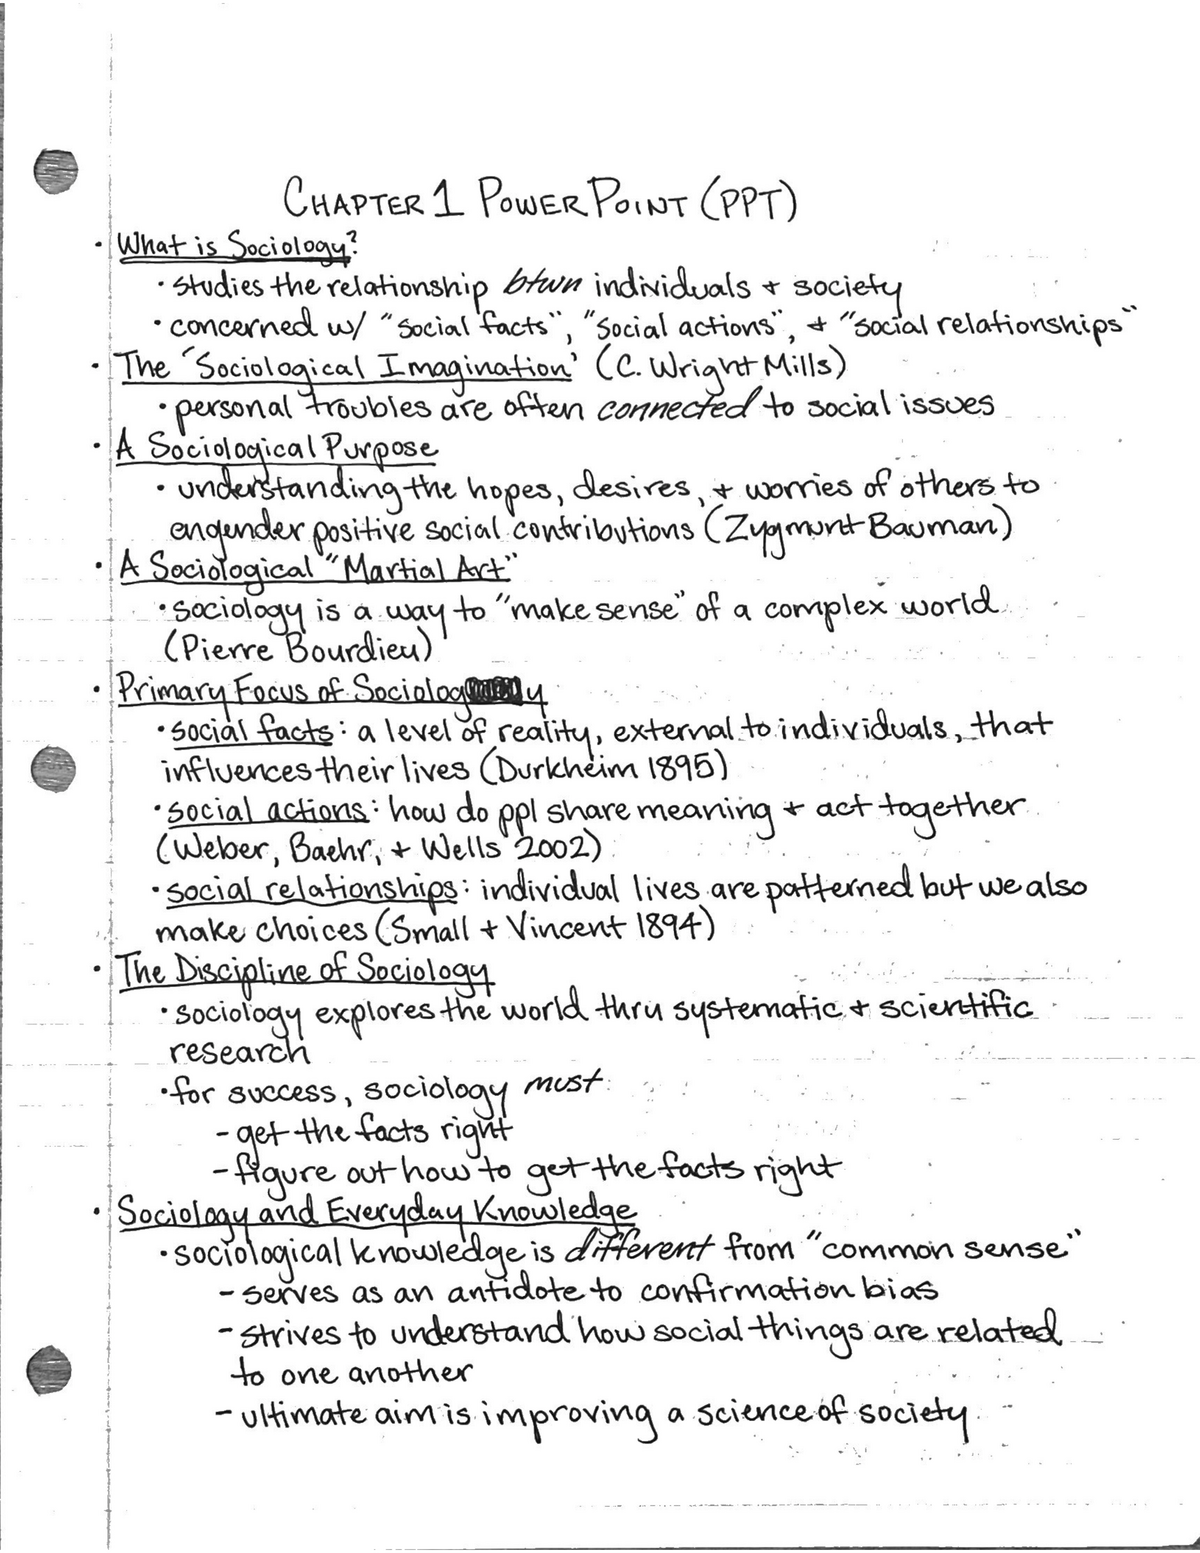 CHAPTER 1 POWERPOINT (PPT)
• What is Sociology?
• studies the relationship btwn individuals + society
• concerned w/ "social facts", "social actions", + "social relationships"
• The 'Sociological Imagination' (C. Wright Mills)
• personal troubles are often connected to social issues
• A Sociological Purpose
• understanding the hopes, desires, + worries of others to
engender positive social contributions (Zygmunt Bauman)
• A Sociological "Martial Art"
• sociology is a way to "make sense" of a complex world
(Pierre Bourdieu)
• Primary Focus of Sociology
• social facts: a level of reality, external to individuals, that
influences their lives (Durkheim 1895)
• social actions: how do ppl share meaning + act together
(Weber, Baehr, + Wells 2002)
• social relationships: individual lives are patterned but we also
make choices (Small + Vincent 1894)
• The Discipline of Sociology
• sociology explores the world thru systematic + scientific
research
• for success, sociology must:
- get the facts right
- figure out how to get the facts right
• Sociology and Everyday Knowledge
• sociological knowledge is different from "common sense"
- serves as an antidote to confirmation bias
- strives to understand how social things are related
to one another
- ultimate aim is improving a science of society